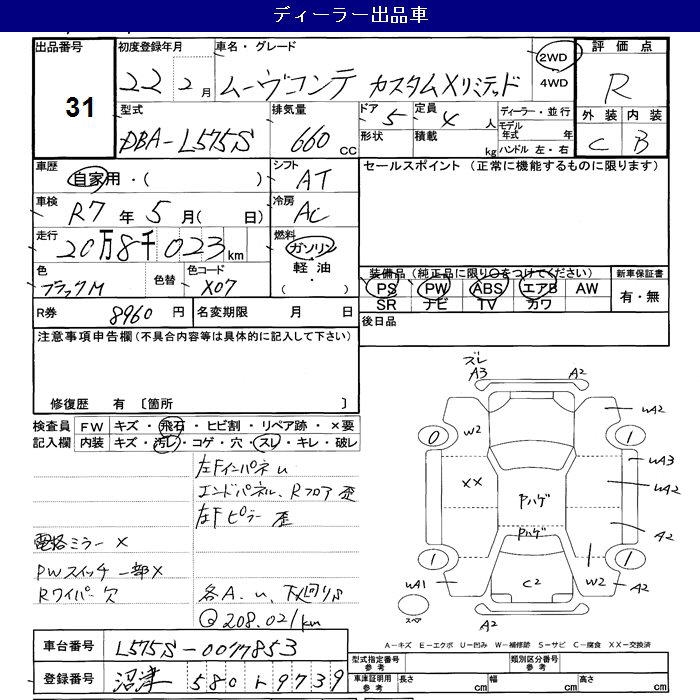 ディーラー出品車
出品番号 31
初度登録年月 22 2月
車名・グレード ムーヴコンテ カスタムXリミテッド
2WD 4WD
評価点 R
外装 C 内装 B
型式 DBA-L575S
排気量 660 CC
ドア 5 形状
定員 4 人 積載 kg
ディーラー・並行
モデル年式 年
ハンドル 左・右
車歴 自家用・( )
シフト AT
セールスポイント (正常に機能するものに限ります)
車検 R7年 5月( 日)
冷房 AC
走行 20万8千023km
燃料 ガソリン 軽油・( )
色 ブラックM 色替 色コード X07
装備品(純正品に限り○をつけてください)
PS PW ABS エアB AW
SR ナビ TV カワ
新車保証書 有・無
R券 8960円 名変期限 月 日
後日品
注意事項申告欄(不具合内容等は具体的に記入して下さい)
修復歴 有 〔箇所 〕
検査員記入欄
FW キズ・飛石・ヒビ割・リペア跡・×要
内装 キズ・汚レ・コゲ・穴・スレ・キレ・破レ
左Fインパネ u
エンドパネル、Rフロア 歪
左Fピラー 歪
電格ミラー ×
PWスイッチ 一部×
Rワイパー欠
各A、u、下廻りS
Q 208.021km
ズレ
A3 A2
wA2
0 W2 1
wA3
XX Pハゲ wA2
Pハゲ A2
1 1
wA1 C2 W2 A2
スペア
A2
A-キズ E-エクボ U-凹み W-補修跡 S-サビ C-腐食 XX-交換済
車台番号 L575S-0077853
型式指定番号 参考 類別区分番号 参考
登録番号 沼津 580 い9739
車庫証明用 参考 長さ cm 幅 cm 高さ cm